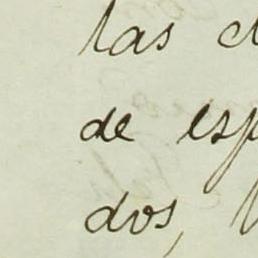 las
de esp
dos,